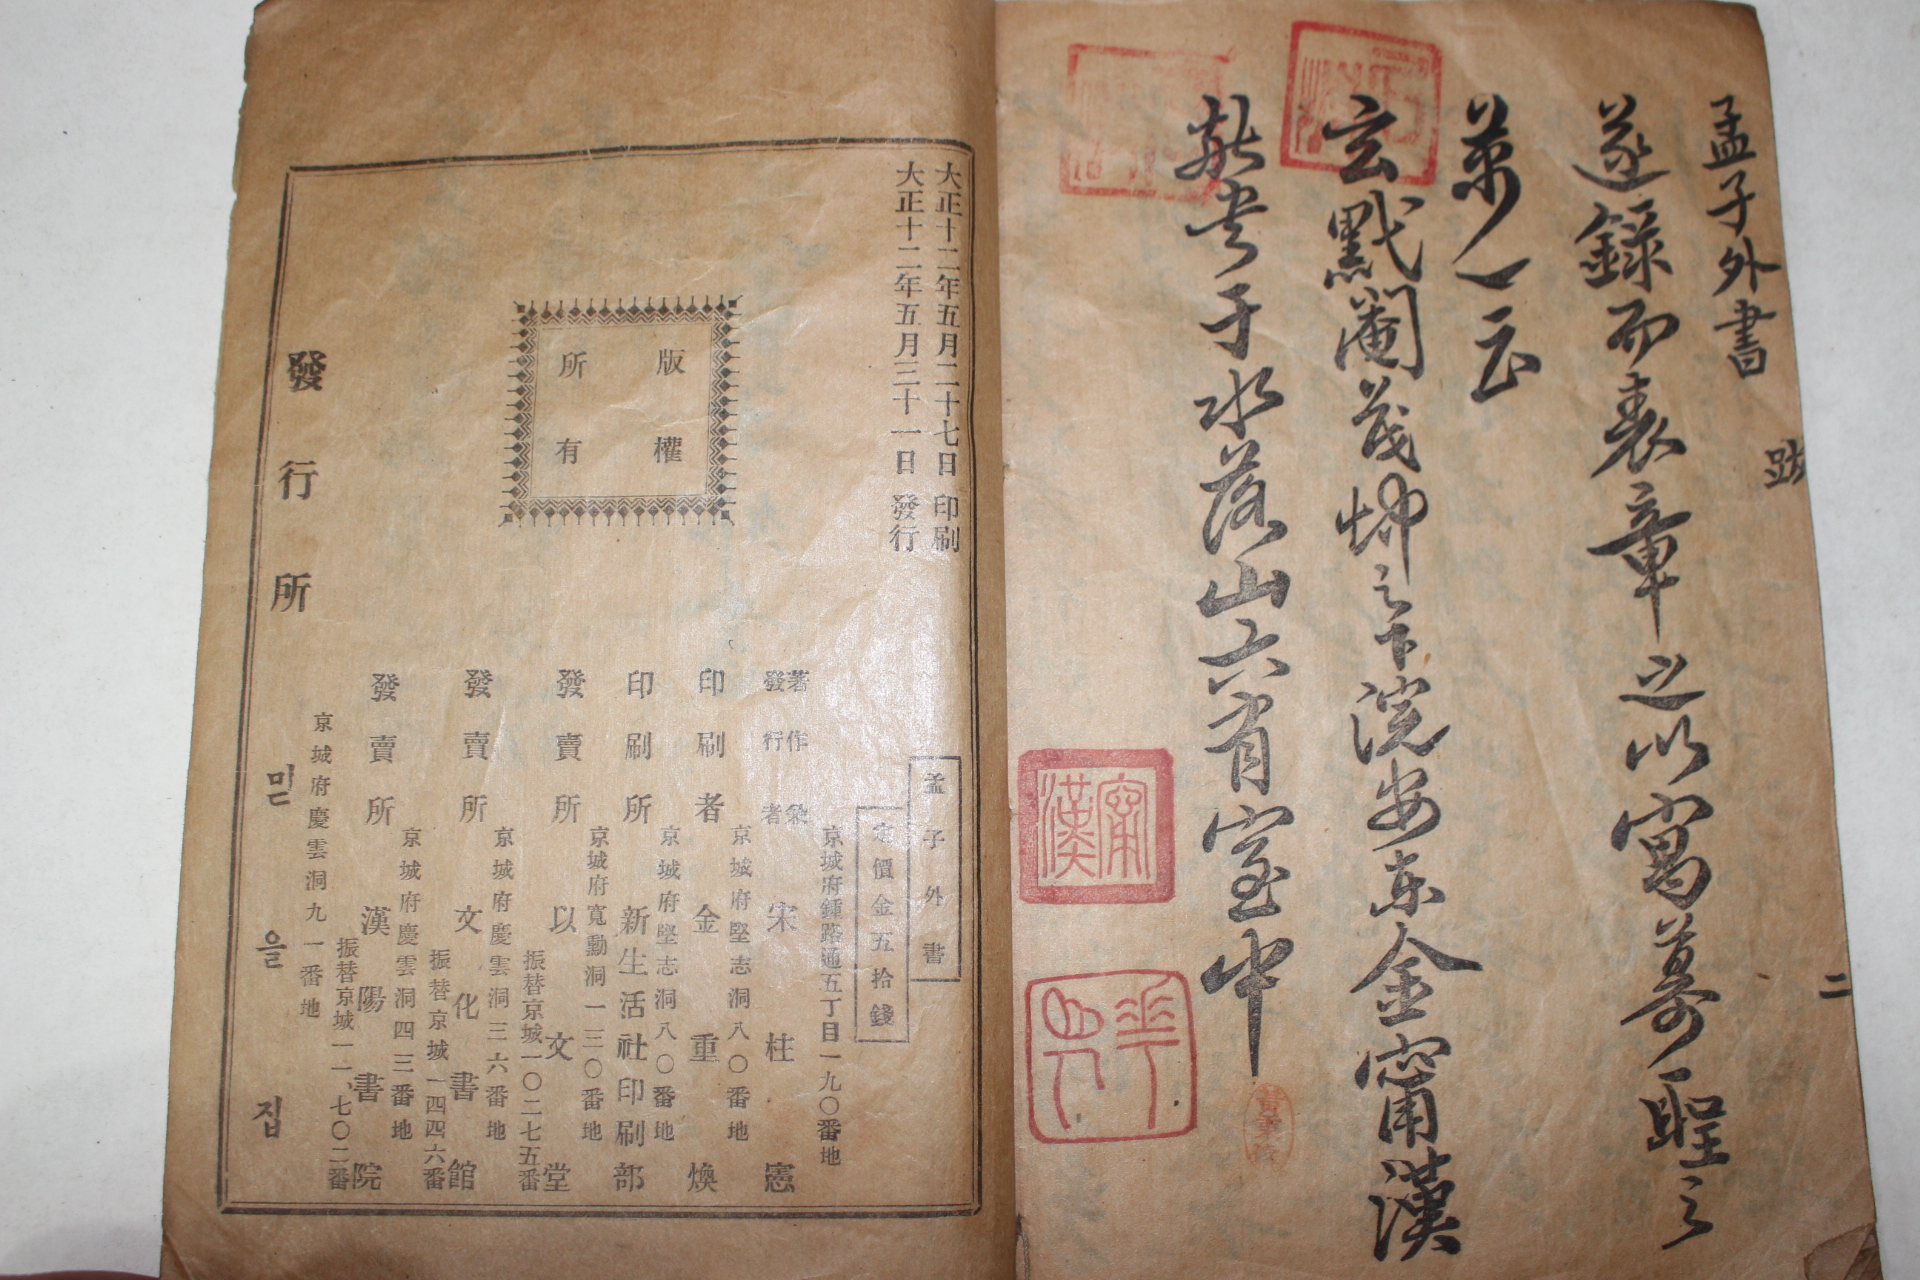 孟子外書
跋
二
遂錄而表章之以寓慕聖之
萬一云
玄黓閹茂㛮之下浣安東金甯漢
敬書于水落山六有室中
甯漢
大正十二年五月二十七日印刷
大正十二年五月三十一日發行
版權所有
孟子外書
定價金五拾錢
京城府鍾路通五丁目一九〇番地
著作兼發行者 宋柱憲
京城府堅志洞八〇番地
印刷者 金重煥
京城府堅志洞八〇番地
印刷所 新生活社印刷部
京城府寬勳洞一三〇番地
發賣所 以文堂
振替京城一〇二七五番
京城府慶雲洞三六番地
發賣所 文化書館
振替京城一四四六番
京城府慶雲洞四三番地
發賣所 漢陽書院
振替京城一一、七〇二番
京城府慶雲洞九一番地
發行所 믿을집